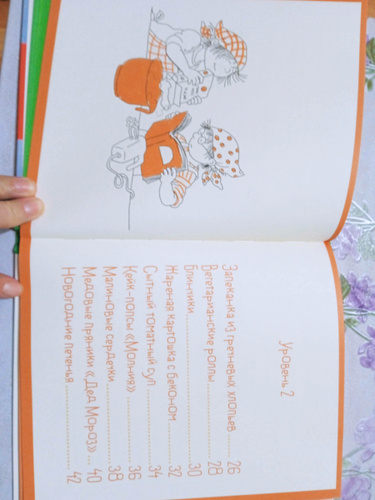 Уровень 2
Запеканка из гречневых хлопьев ........ 26
Вегетарианские роллы ........ 28
Блинчики ........ 30
Жареная картошка с беконом ........ 32
Сытный томатный суп ........ 34
Кейк-попсы «Молния» ........ 36
Малиновые сердечки ........ 38
Медовые пряники «Дед Мороз» ........ 40
Новогодние печенья ........ 42